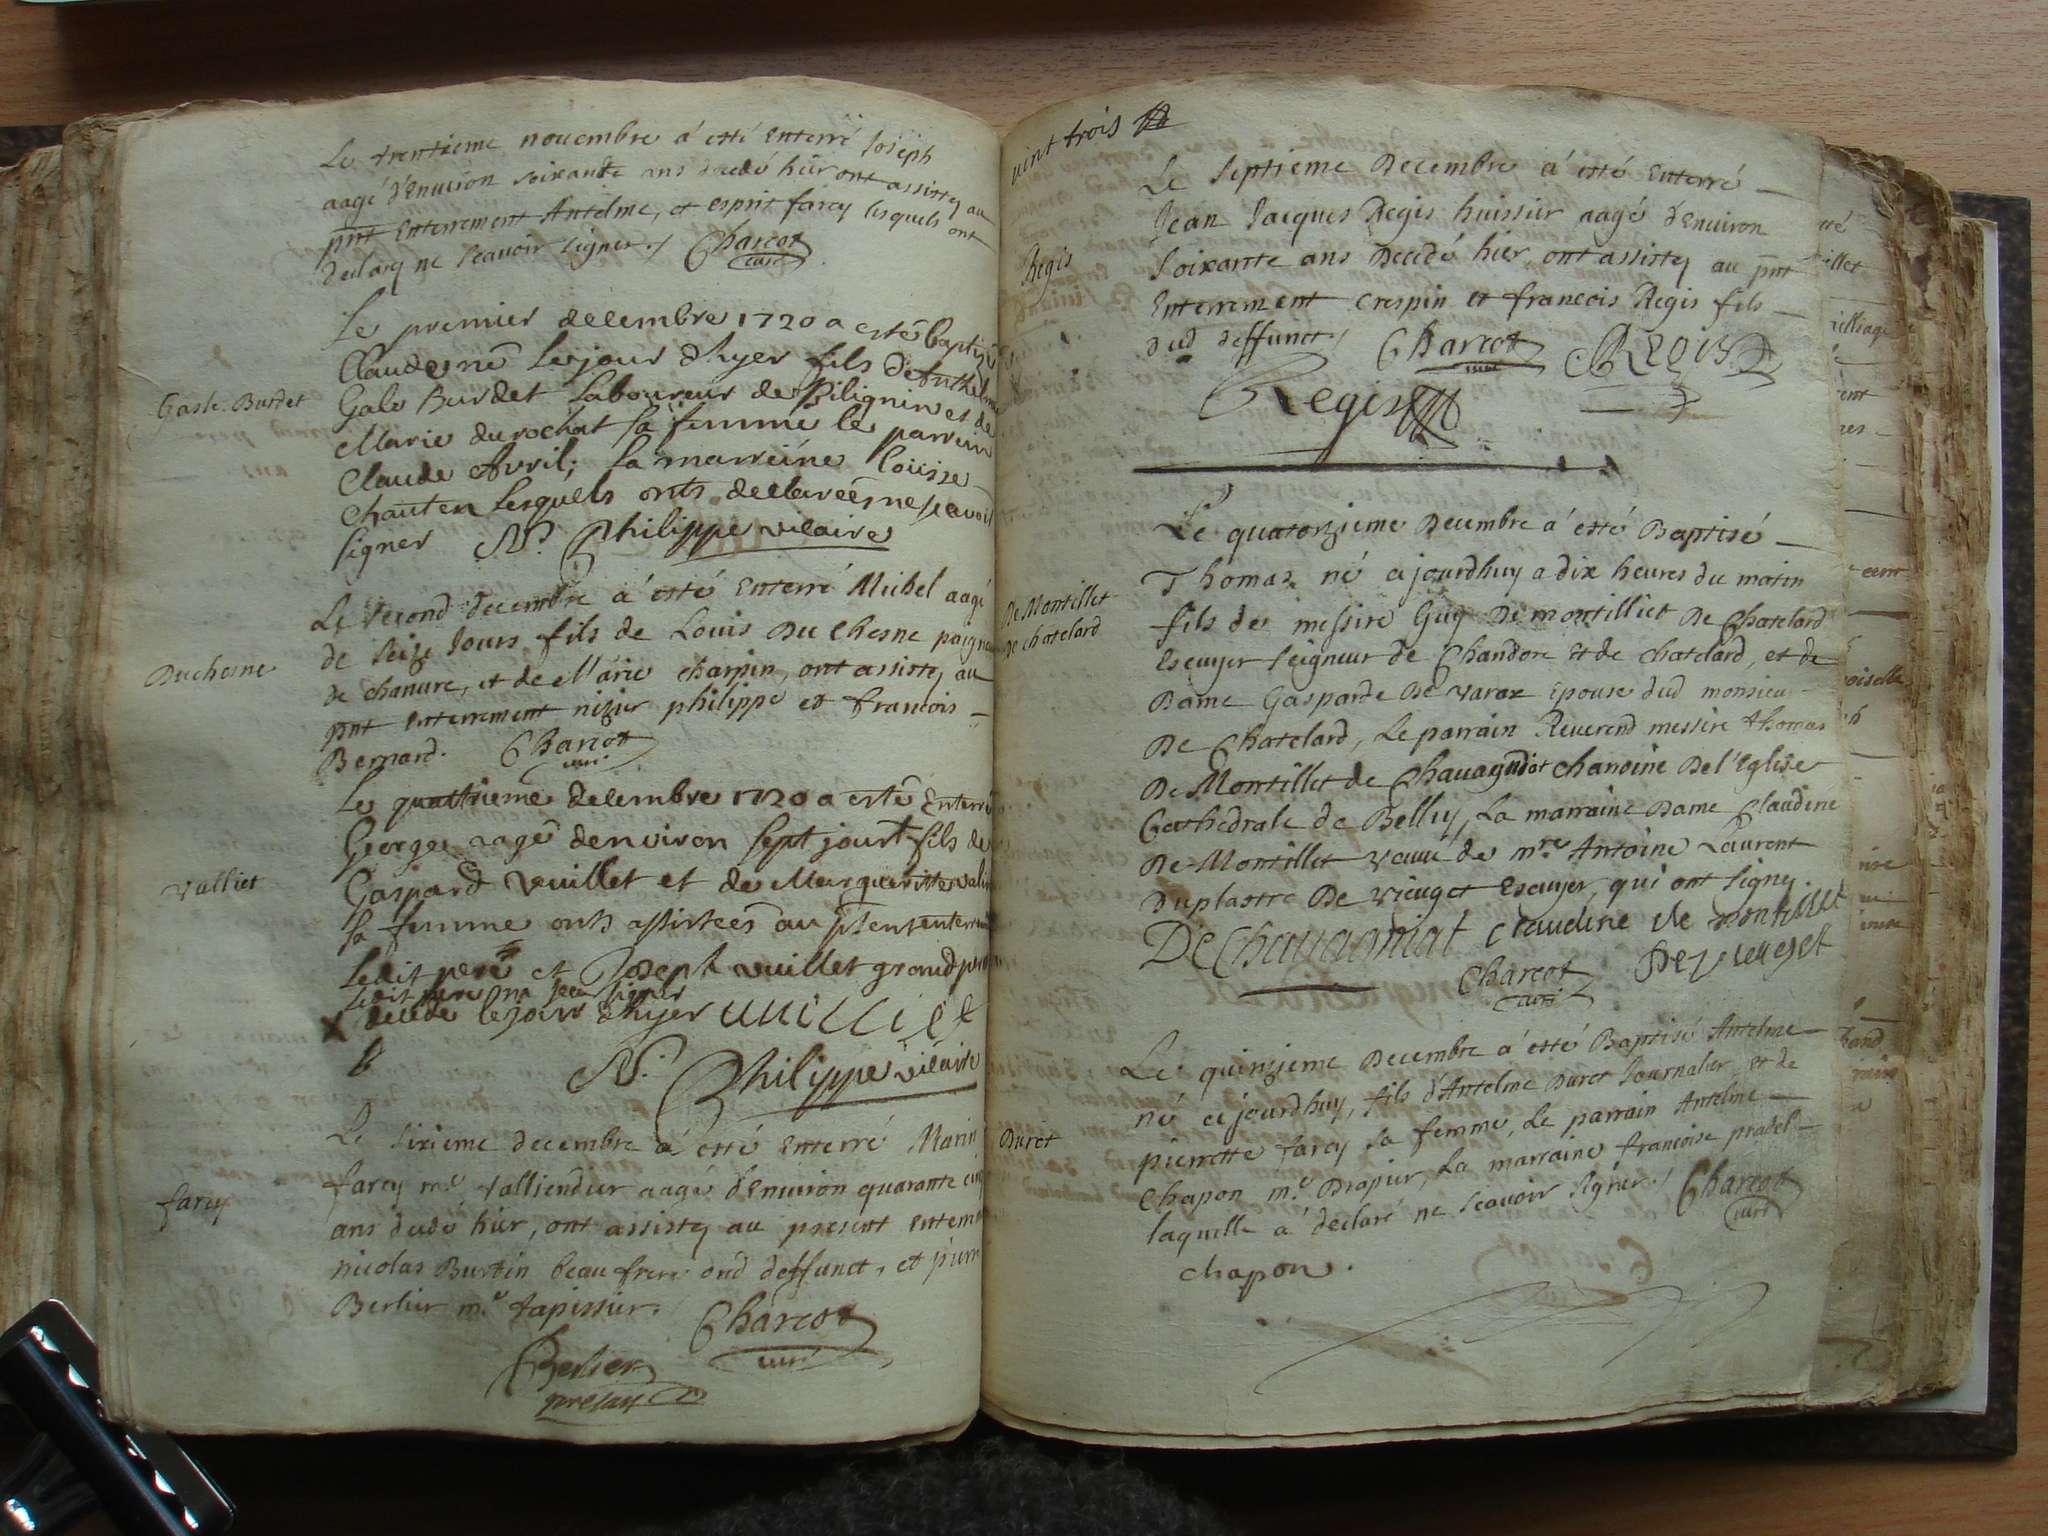 Le trentieme nouembre á esté Enterré Joseph
aagé d'Enuiron soixante ans decedé hier ont assistez au
pnt Enterrement Antelme, et esprit farcy lesquels ont
declarez ne scauoir signer./ Charcot
curé
Le premier decembre 1720 a esté baptisé
Claude né le jour d'hyer fils de Anthelme
Gasle Burdet
Gale Burdet laboureur de Pilignin et de
Marie durochat sa femme le parrein
Claude Avril; la marreine Louise
Chanten lesquels onts declareés ne scavoir
signer N. Philippe vicaire
Le second decembre á esté Enterré Michel aagé
de seize Jours fils de Louis Du Chesne peigneur
Duchesne
de chanure, et de Marie charpin, ont assistez au
pnt Enterrement nizier philippe et francois
Bernard. Charcot
curé
Le quattrieme decembre 1720 a esté Enterré
George aagé denviron sept jours fils de
Vulliet
Gaspard Vuillet et de Margueritte
sa femme onts assisteés au pñt enterrement
Ledit pere et Joseph vuillet grand pere
Ledit pere na sceu signer
X decede le jour d'hyer vuilliet
N. Philippe vicaire
Le sixieme decembre á esté Enterré Marin
farcy m.e talliendier aagé d'Enuiron quarante cinq
farcy
ans decedé hier, ont assistez au present enterrement
nicolas Burtin beaufrere dud deffunct, et pierre
Berlier m.e tapissier. Charcot
curé
Berlier
present
vint trois
Le septieme Decembre á esté Enterré
Jean Jacques Regis huissier aagé d'Enuiron
Regis
soixante ans Decedé hier, ont assistez au pnt
Enterrement crespin et francois Regis fils
dud deffunct / Charcot Regis
curé
Regis
Le quatorzieme Decembre á esté Baptisé
Thomas né cejourdhuy a dix heures du matin
De Montillet
De chatelard
fils de messire Guy De montilliet De Chatelard
Escuyer seigneur de Chandore et de chatelard, et de
Dame Gasparde De varax Epouse dud monsieur
De Chatelard, Le parrain Reuerend messire thomas
De Montillet de Chauagniat chanoine De l'Eglise
Cathedrale de Belley, La marraine Dame Claudine
De Montillet veuue de m.re Antoine Laurent
Duplastre De vieuget Escuyer, qui ont signez.
De Chauagniat claudine de montillet
Charcot De vieuget
curé
Le quinzieme Decembre á esté Baptisé Antelme
né cejourdhuy, fils d'Antelme Buret Journalier et de
Buret
pierrette farcy sa femme, Le parrain Antelme
Chapon m.e Drapier, La marraine francoise pradel
laquelle á declaré ne scauoir signer./ Charcot
curé
chapon.